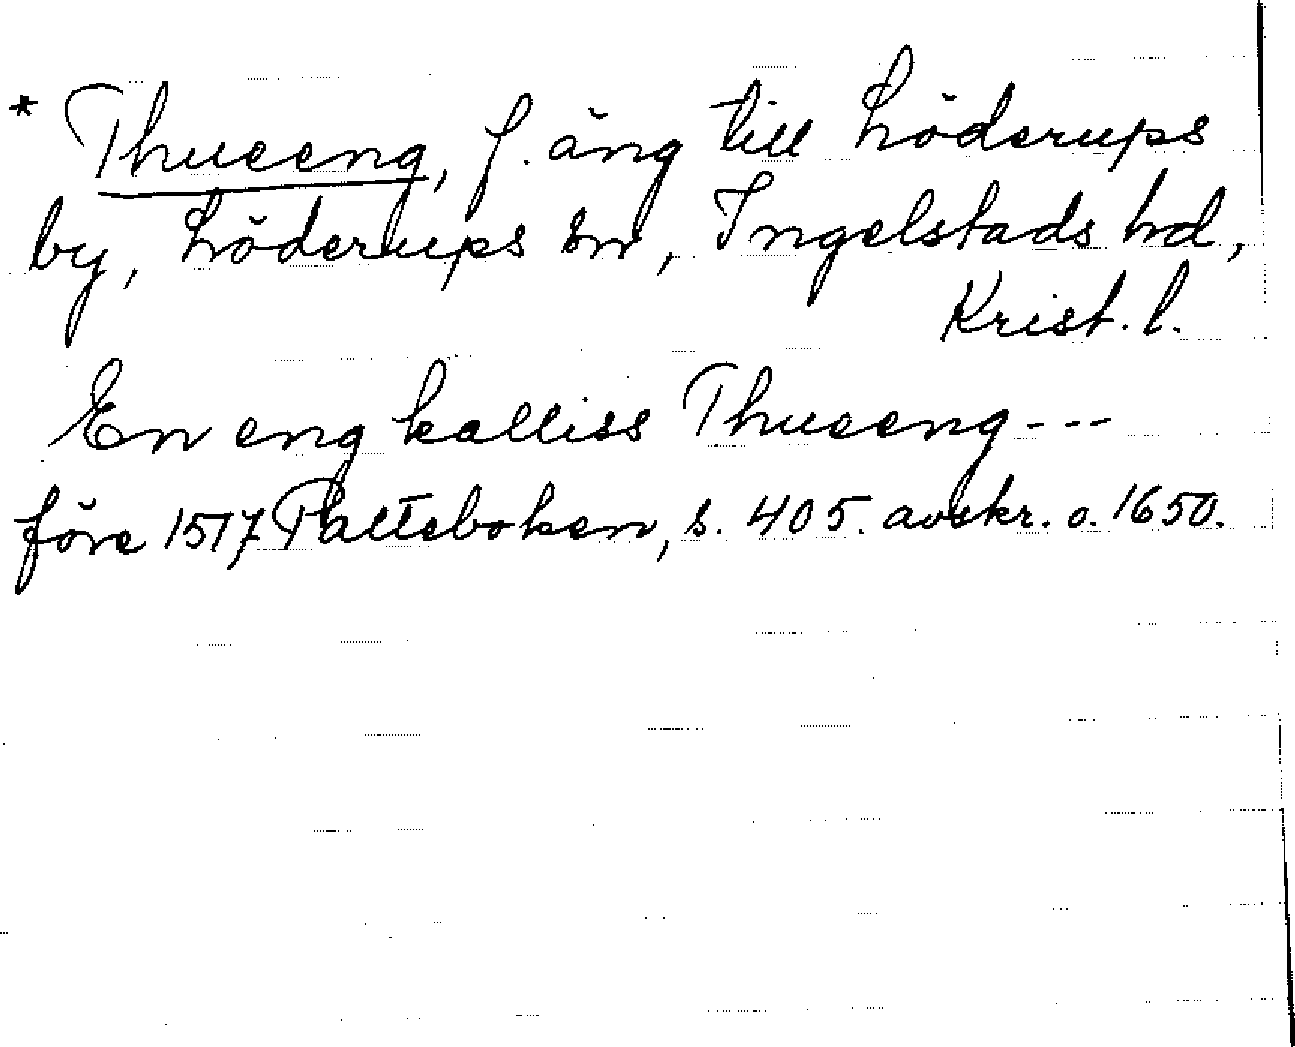 * Thueeng, f. äng till Löderups
by, Löderups sn, Ingelstads hd,
Krist. l.
En eng kalliss Thueeng ---
före 1517 Palteboken, s. 405. avskr. o. 1650.